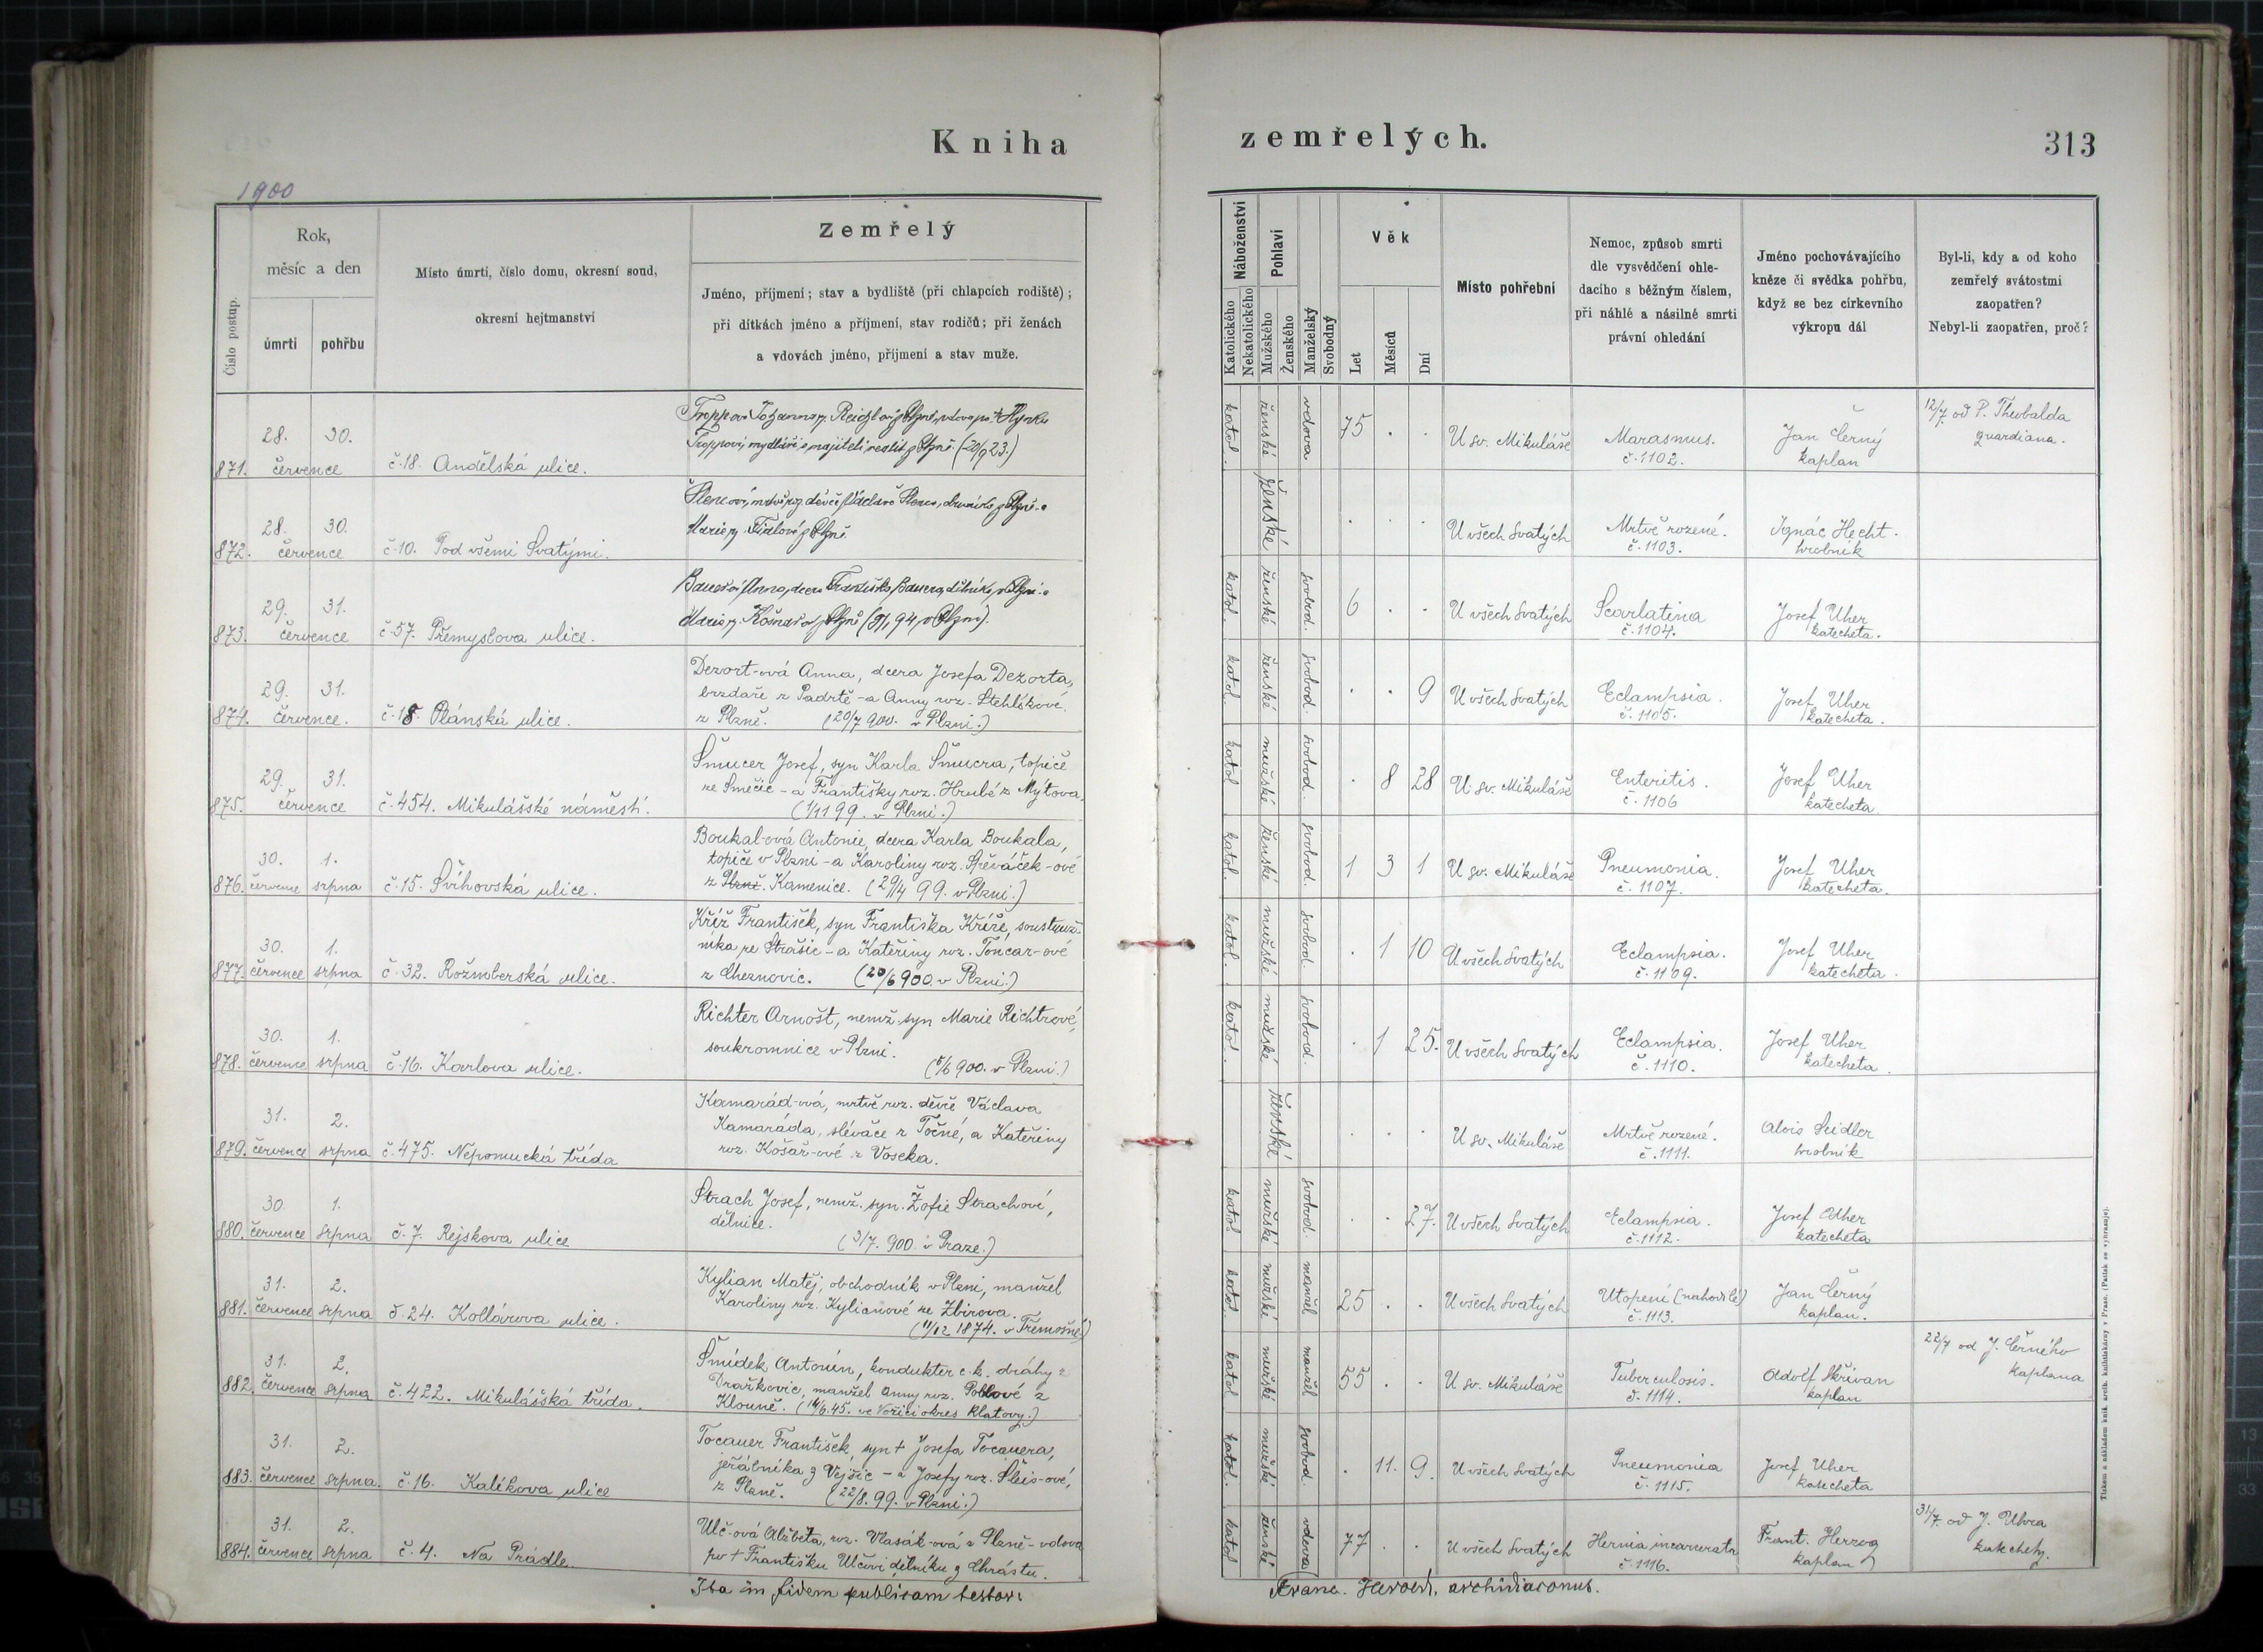 Kniha
zemřelých.
313
1900
Číslo postup.
Rok,
měsíc a den
úmrtí
pohřbu
Místo úmrtí, číslo domu, okresní soud,
okresní hejtmanství
Zemřelý
Jméno, příjmení; stav a bydliště (při chlapcích rodiště);
při dítkách jméno a příjmení, stav rodičů; při ženách
a vdovách jméno, příjmení a stav muže.
Náboženství
Katolického
Nekatolického
Pohlaví
Mužského
Ženského
Manželský
Svobodný
Věk
Let
Měsíců
Dní
Místo pohřební
Nemoc, způsob smrti
dle vysvědčení ohle-
dacího s běžným číslem,
při náhlé a násilné smrti
právní ohledání
Jméno pochovávajícího
kněze či svědka pohřbu,
když se bez církevního
výkropu dál
Byl-li, kdy a od koho
zemřelý svátostmi
zaopatřen?
Nebyl-li zaopatřen, proč?
871. 28. 30. července č. 18. Andělská ulice.
katol. ženské vdova 75 . . U sv. Mikuláše Marasmus. č. 1102. Jan Černý kaplan
12/7 od P. Theobalda
quardiana.
872. 28. 30. července č. 10. Pod všemi Svatými.
ženské . . . U všech Svatých Mrtvě rozené. č. 1103. Ignác Hecht. hrobník
873. 29. 31. července č. 57. Přemyslova ulice.
katol. ženské svobod. 6 . . U všech Svatých Scarlatina č. 1104. Josef Uher katecheta.
874. 29. 31. července. č. 18. Plánská ulice.
Dezort-ová Anna, dcera Josefa Dezorta,
brzdaře z Padrtě - a Anny roz. Stehlíkové
z Plzně. (20/7 900. v Plzni.)
katol. ženské svobod. . . 9 U všech Svatých Eclampsia. č. 1105. Josef Uher katecheta.
875. 29. 31. července č. 454. Mikulášské náměstí.
Šmucer Josef, syn Karla Šmucra, topiče
ze Smečic - a Františky roz. Hrubé z Mýtova.
(1/11 99. v Plzni.)
katol mužské svobod. . 8 28 U sv. Mikuláše Enteritis. č. 1106 Josef Uher katecheta.
876. 30. července 1. srpna č. 15. Švihovská ulice.
Boukal-ová Antonie, dcera Karla Boukala,
topiče v Plzni - a Karoliny roz. Spěváček-ové
z Plzně. Kamenice. (29/4 99. v Plzni.)
katol. ženské svobod. 1 3 1 U sv. Mikuláše Pneumonia. č. 1107. Josef Uher katecheta.
877. 30. července 1. srpna č. 32. Rožmberská ulice.
Kříž František, syn Františka Kříže, soustruž-
níka ze Strašic - a Kateřiny roz. Tóncar-ové
z Cheznovic. (20/6 900. v Plzni.)
katol. mužské svobod. . 1 10 U všech Svatých Eclampsia. č. 1109. Josef Uher katecheta.
878. 30. července 1. srpna č. 16. Karlova ulice.
Richter Arnošt, nemž. syn Marie Richtrové,
soukromnice v Plzni.
(5/6 900. v Plzni.)
katol. mužské svobod. . 1 25. U všech Svatých Eclampsia. č. 1110. Josef Uher katecheta.
879. 31. července 2. srpna č. 475. Nepomucká třída
Kamarád-ová, mrtvě roz. děvče Václava
Kamaráda, slévače z Točné, a Kateřiny
roz. Košař-ové z Voseka.
ženské . . . U sv. Mikuláše Mrtvě rozené. č. 1111. Alois Seidler hrobník
880. 30. července 1. srpna č. 7. Rejskova ulice
Strach Josef, nemž. syn Žofie Strachové,
dělnice.
(3/7. 900. v Praze.)
katol mužské svobod. . . 27. U všech Svatých Eclampsia. č. 1112. Josef Uher katecheta
881. 31. července 2. srpna č. 24. Kollárova ulice.
Kylian Matěj, obchodník v Plzni, manžel
Karoliny roz. Kylianové ze Zbirova.
(11/12 1874. v Třemošné)
katol. mužské manžel 25 . . U všech Svatých Utopení (nahodilé) č. 1113. Jan Černý kaplan.
882. 31. července 2. srpna č. 422. Mikulášská třída.
Šmídek Antonín, kondukter c. k. dráhy z
Dražkovic, manžel Anny roz. Poblové z
Klouně. (14/6. 45. ve okres Klatovy.)
katol mužské manžel 55 . . U sv. Mikuláše Tuberculosis. č. 1114. Adolf Skřivan kaplan
22/7 od J. Černého
kaplana
883. 31. července 2. srpna. č. 16. Kalikova ulice
Tocauer František, syn † Josefa Tocauera,
jeřábníka z Vejšic - a Josefy roz. Šleis-ové,
z Plzně. (22/8. 99. v Plzni.)
katol. mužské svobod. . 11. 9. U všech Svatých Pneumonia č. 1115. Josef Uher katecheta
884. 31. července 2. srpna č. 4. Na Prádle.
Ulč-ová Alžběta, roz. Vlasák-ová z Plzně - vdova
po † Františku Ulčovi dělníku z Chrástu.
katol ženské vdova 77 . . U všech Svatých Hernia incarcerata č. 1116. Frant. Herzog kaplan
31/7. od J. Uhra
katechety.
Ita in fidem publicam testor:
Franc. Herold, archidiaconus.